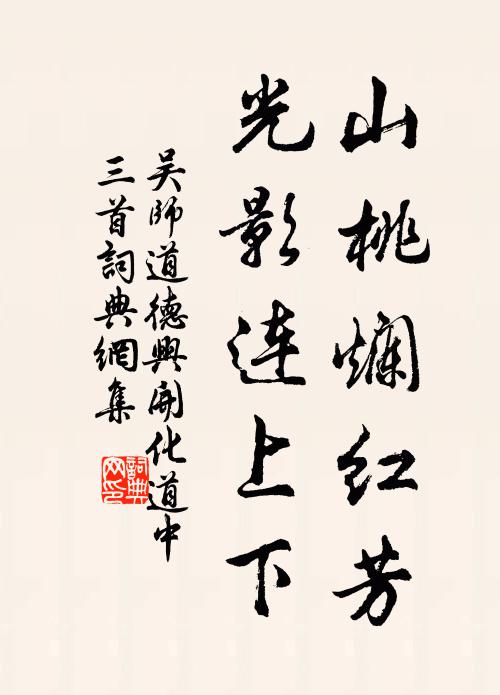 山桃爛红芳
光影連上下
吴師道德興開化道中
三首詞典網集
詞典網印